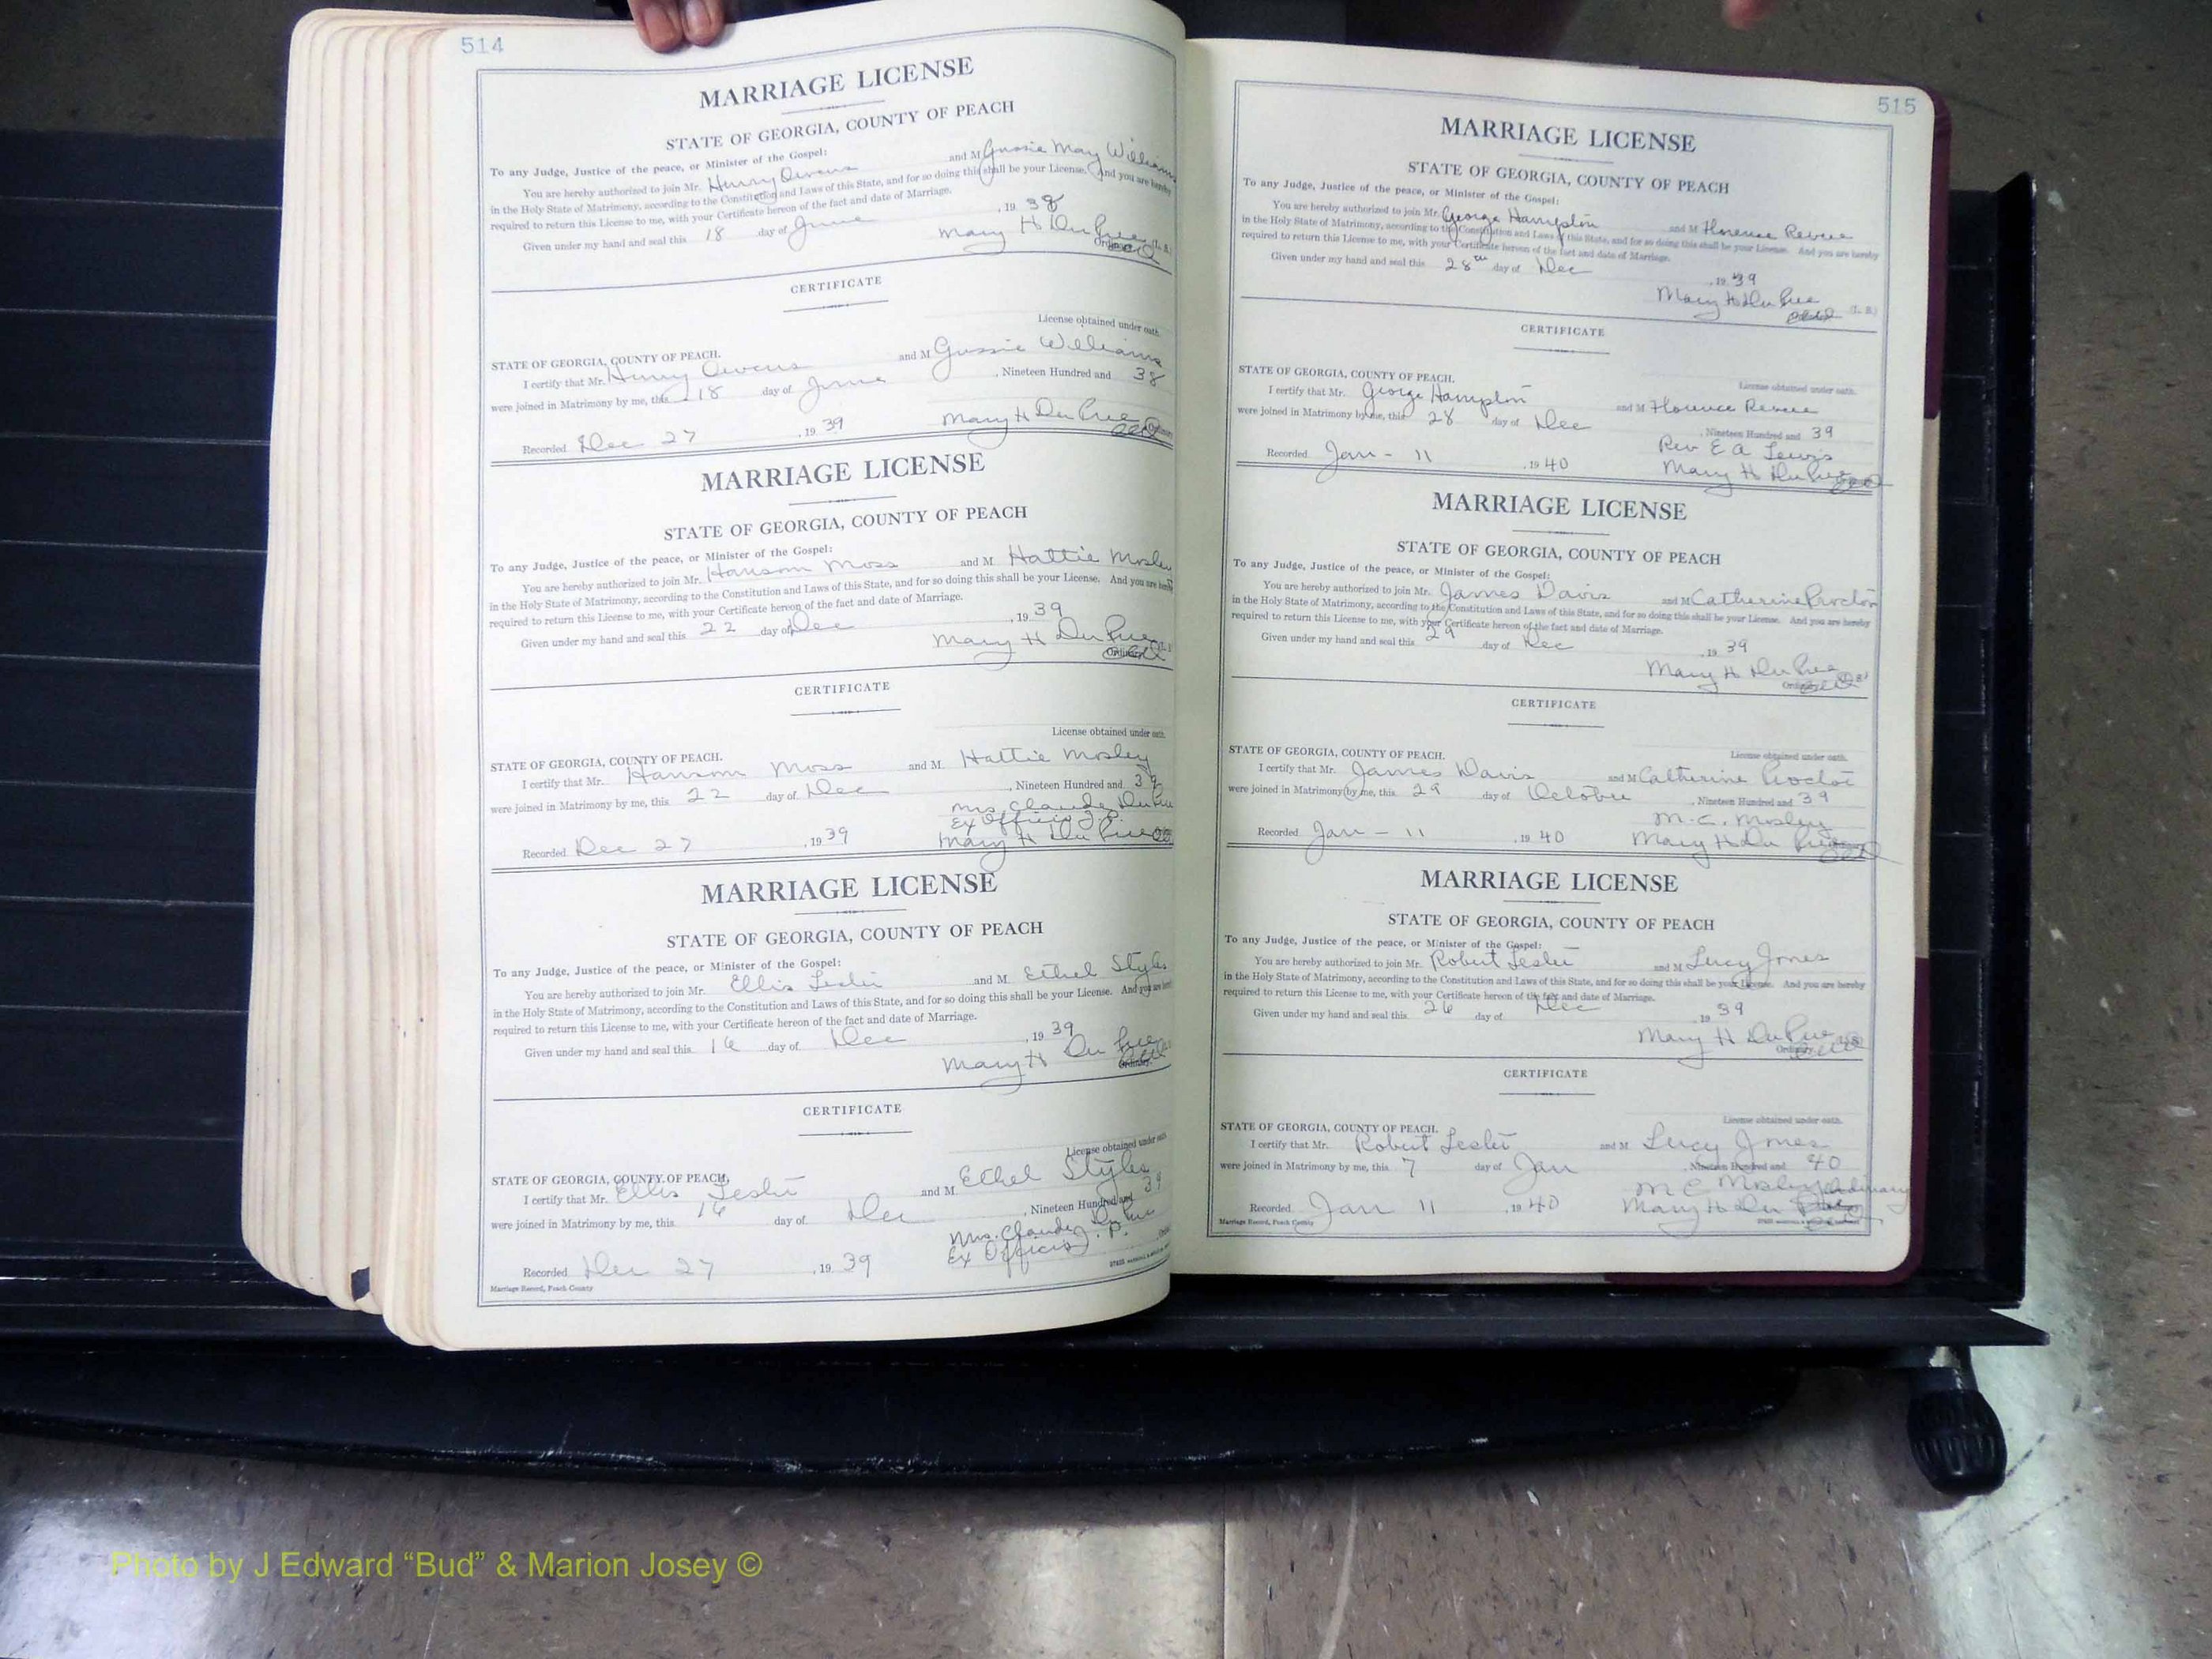 514
MARRIAGE LICENSE
STATE OF GEORGIA, COUNTY OF PEACH
To any Judge, Justice of the peace, or Minister of the Gospel:
You are hereby authorized to join Mr. Henry Owens and M Gussie May Williams
in the Holy State of Matrimony, according to the Constitution and Laws of this State, and for so doing this shall be your License. And you are hereby
required to return this License to me, with your Certificate hereon of the fact and date of Marriage.
Given under my hand and seal this 18 day of June, 19 38
Mary H Du Pree
Ordinary
CERTIFICATE
License obtained under oath.
STATE OF GEORGIA, COUNTY OF PEACH.
I certify that Mr. Henry Owens and M Gussie Williams
were joined in Matrimony by me, this 18 day of June, Nineteen Hundred and 38
Recorded Dec 27, 19 39 Mary H Du Pree
MARRIAGE LICENSE
STATE OF GEORGIA, COUNTY OF PEACH
To any Judge, Justice of the peace, or Minister of the Gospel:
You are hereby authorized to join Mr. Hansom Moss and M. Hattie Mosley
in the Holy State of Matrimony, according to the Constitution and Laws of this State, and for so doing this shall be your License. And you are hereby
required to return this License to me, with your Certificate hereon of the fact and date of Marriage.
Given under my hand and seal this 22 day of Dec, 19 39
Mary H Du Pree
Ordinary
CERTIFICATE
License obtained under oath.
STATE OF GEORGIA, COUNTY OF PEACH.
I certify that Mr. Hansom Moss and M. Hattie Mosley
were joined in Matrimony by me, this 22 day of Dec, Nineteen Hundred and 39
Mrs. Claude Du Pree
Ex Officio J.P.
Recorded Dec 27, 19 39 Mary H Du Pree
MARRIAGE LICENSE
STATE OF GEORGIA, COUNTY OF PEACH
To any Judge, Justice of the peace, or Minister of the Gospel:
You are hereby authorized to join Mr. Ellis Leslie and M. Ethel Styles
in the Holy State of Matrimony, according to the Constitution and Laws of this State, and for so doing this shall be your License. And you are hereby
required to return this License to me, with your Certificate hereon of the fact and date of Marriage.
Given under my hand and seal this 16 day of Dec, 19 39
Mary H Du Pree
Ordinary
CERTIFICATE
License obtained under oath
STATE OF GEORGIA, COUNTY OF PEACH,
I certify that Mr. Ellis Leslie and M Ethel Styles
were joined in Matrimony by me, this 16 day of Dec, Nineteen Hundred and 39
Mrs. Claude Du Pree
Ex Officio J. P.
Recorded Dec 27, 19 39
Marriage Record, Peach County
515
MARRIAGE LICENSE
STATE OF GEORGIA, COUNTY OF PEACH
To any Judge, Justice of the peace, or Minister of the Gospel:
You are hereby authorized to join Mr. George Hampton and M Florence Reveve
in the Holy State of Matrimony, according to the Constitution and Laws of this State, and for so doing this shall be your License. And you are hereby
required to return this License to me, with your Certificate hereon of the fact and date of Marriage.
Given under my hand and seal this 28th day of Dec, 19 39
Mary H Du Pree (L. S.)
CERTIFICATE
License obtained under oath.
STATE OF GEORGIA, COUNTY OF PEACH.
I certify that Mr. George Hampton and M Florence
were joined in Matrimony by me, this 28 day of Dec, Nineteen Hundred and 39
Rev E A Lewis
Recorded Jan - 11, 19 40 Mary H Du Pree
MARRIAGE LICENSE
STATE OF GEORGIA, COUNTY OF PEACH
To any Judge, Justice of the peace, or Minister of the Gospel:
You are hereby authorized to join Mr. James Davis and M Catherine Proctor
in the Holy State of Matrimony, according to the Constitution and Laws of this State, and for so doing this shall be your License. And you are hereby
required to return this License to me, with your Certificate hereon of the fact and date of Marriage.
Given under my hand and seal this 29 day of Dec, 19 39
Mary H Du Pree
CERTIFICATE
License obtained under oath.
STATE OF GEORGIA, COUNTY OF PEACH.
I certify that Mr. James Davis and M Catherine Proctor
were joined in Matrimony by me, this 29 day of October, Nineteen Hundred and 39
M. C. Mosley
Recorded Jan - 11, 19 40 Mary H Du Pree
MARRIAGE LICENSE
STATE OF GEORGIA, COUNTY OF PEACH
To any Judge, Justice of the peace, or Minister of the Gospel:
You are hereby authorized to join Mr. Robert Leslie and M Lucy Jones
in the Holy State of Matrimony, according to the Constitution and Laws of this State, and for so doing this shall be your License. And you are hereby
required to return this License to me, with your Certificate hereon of the fact and date of Marriage.
Given under my hand and seal this 26 day of Dec, 19 39
Mary H Du Pree
CERTIFICATE
License obtained under oath.
STATE OF GEORGIA, COUNTY OF PEACH.
I certify that Mr. Robert Leslie and M Lucy Jones
were joined in Matrimony by me, this 7 day of Jan, Nineteen Hundred and 40
M C Mosley Ordinary
Recorded Jan 11, 19 40 Mary H Du Pree
Marriage Record, Peach County
Photo by J Edward “Bud” & Marion Josey ©